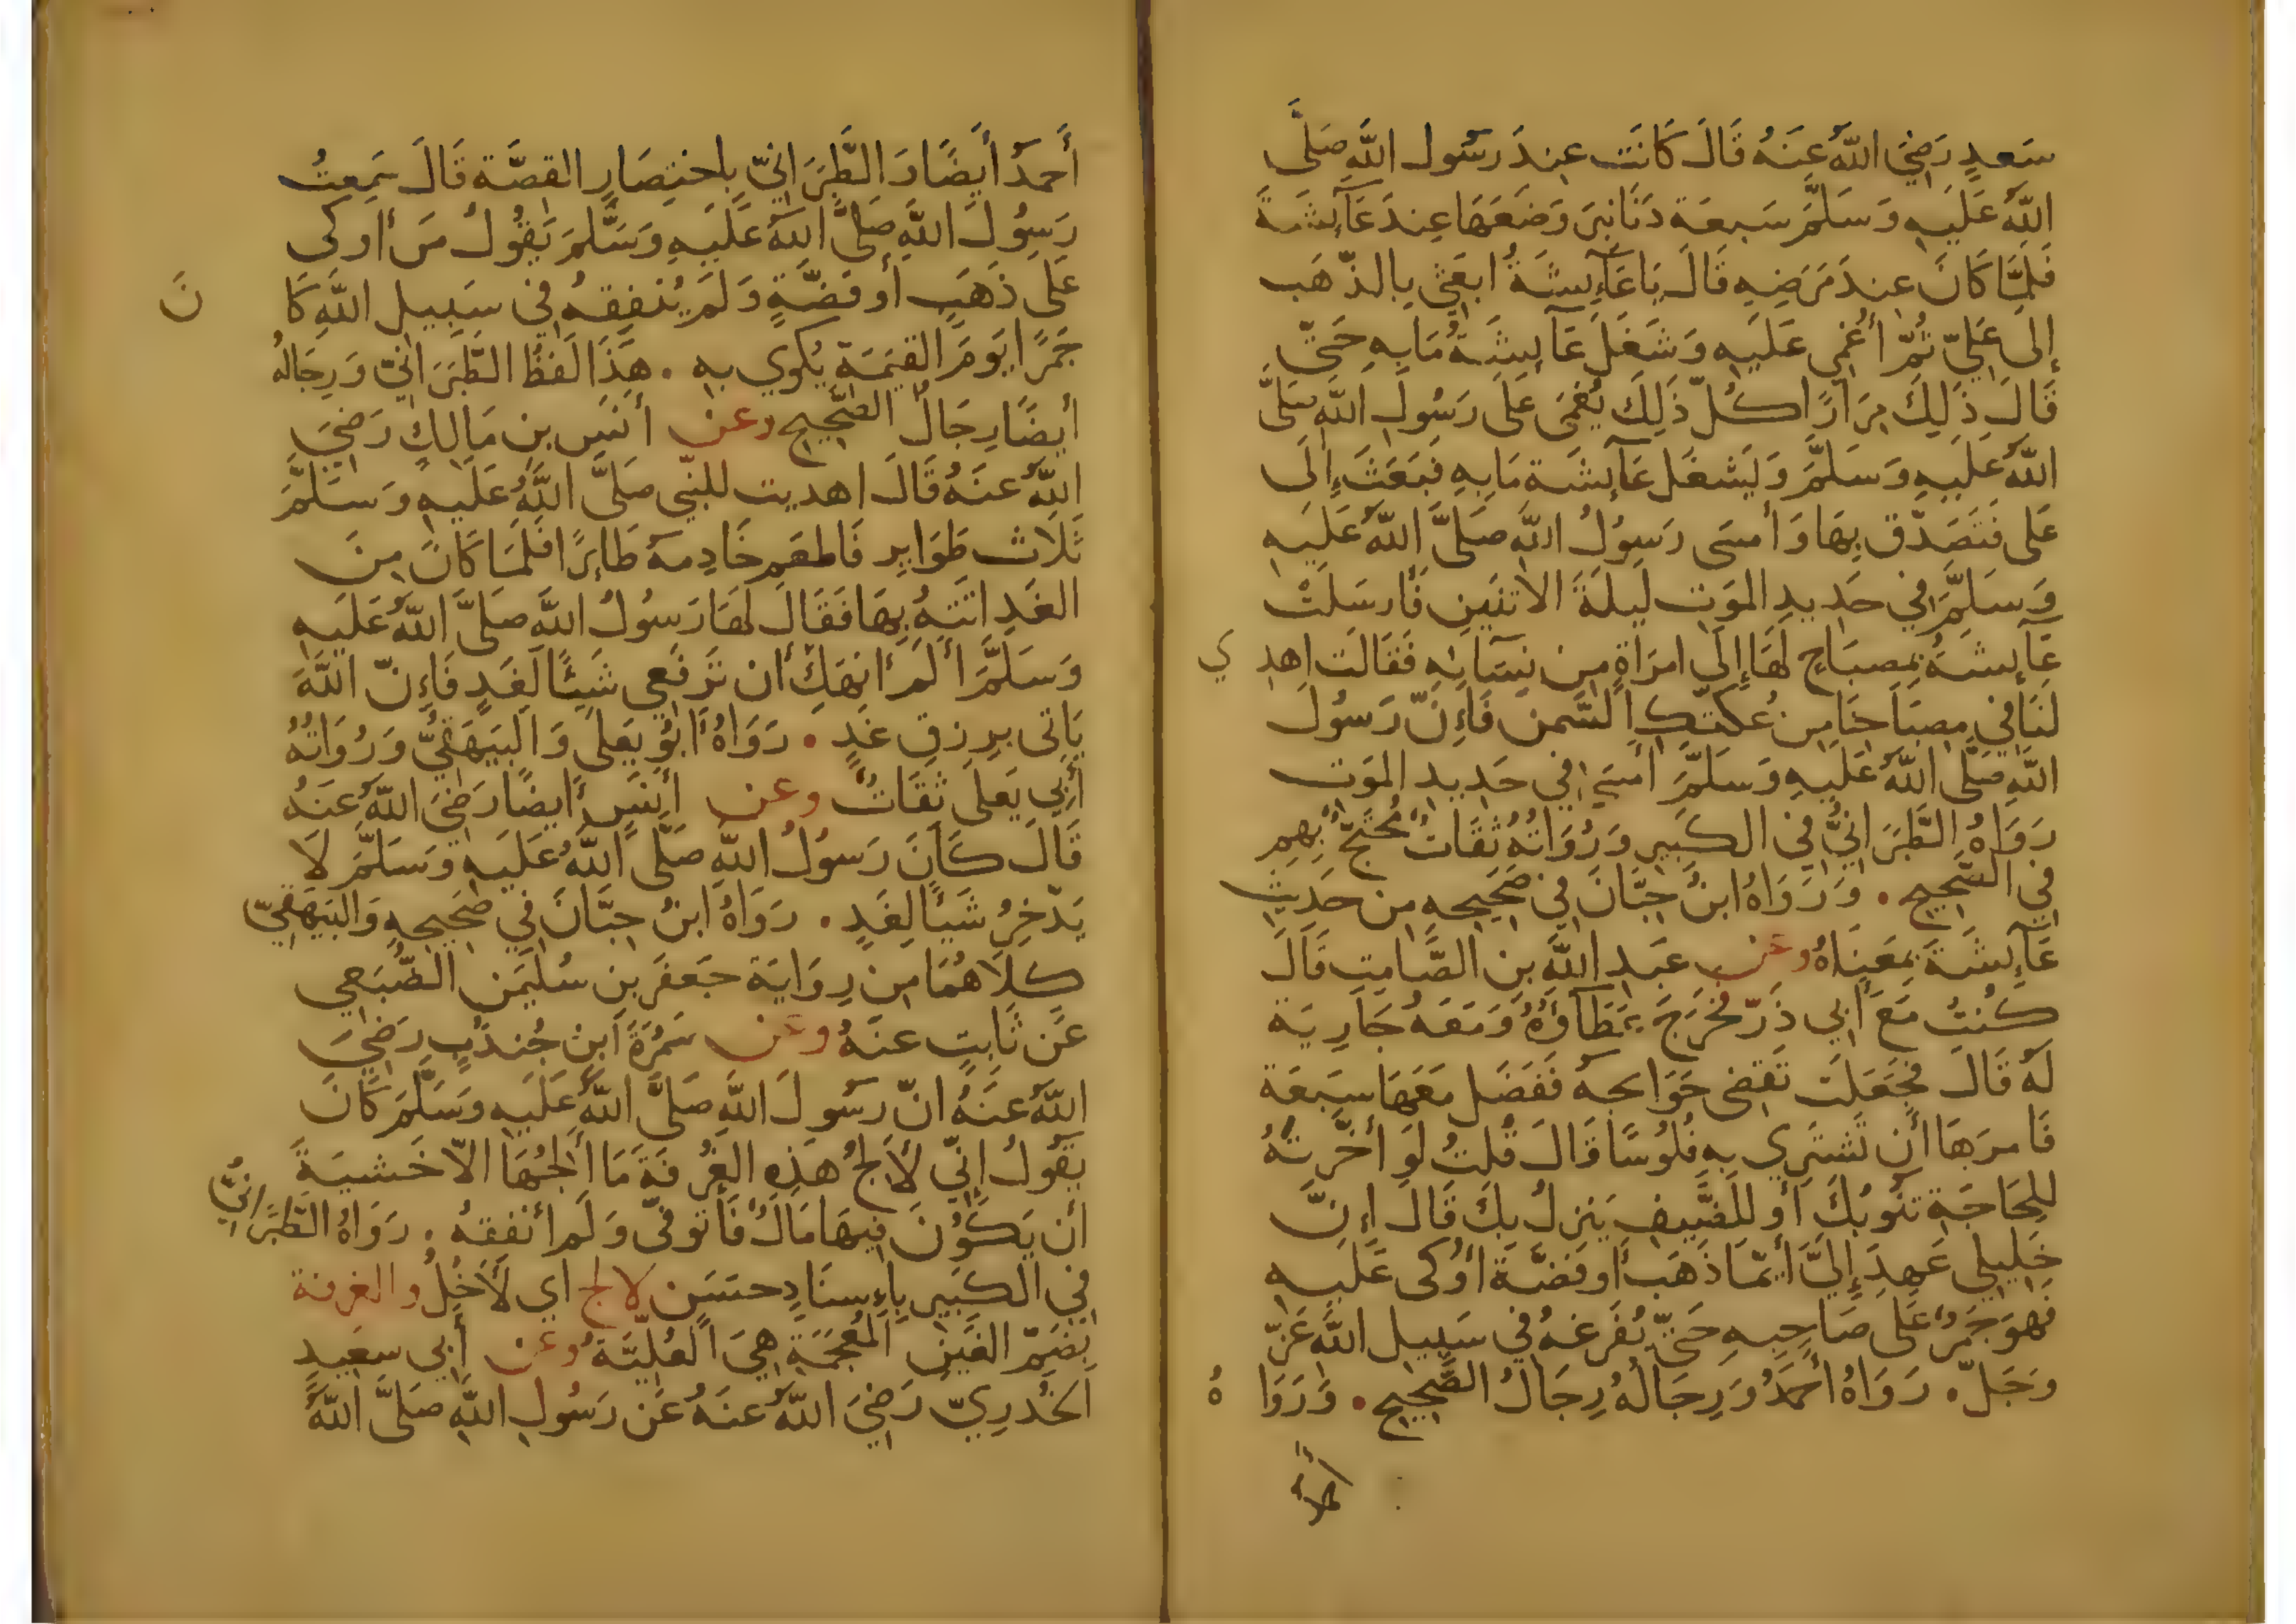 سَعدٍ رَضِيَ اللَّهُ عَنهُ قَالَ كَانَت عِندَ رَسُول اللَّهِ صَلَّى
اللَّهُ عَلَيهِ وَسَلَّمَ سَبعَة دَنَانِيرَ وَضَعَهَا عِندَ عَآئِشَةَ
فَلَمَّا كَانَ عِندَ مَرَضِهِ قَالَ يَا عَآئِشَةُ ابعَثِي بِالذَّهَب
إِلى عَلِيّ ثُمّ أُغمِي عَلَيهِ وَشَغَلَ عَآئِشَةُ مَا بِهِ حَتّى
قَالَ ذَلِكَ مِرَارًا كُلّ ذَلِكَ يُغمَى عَلَى رَسُولِ اللَّهِ صَلَّى
اللَّهُ عَلَيهِ وَسَلَّمَ وَيَشغَل عَآئِشَة مَا بِهِ فَبَعَثَ إِلَى
عَلى فَتَصَدَّق بِهَا وَأمسَى رَسُوْلُ اللَّهِ صَلَّى اللَّهُ عَلَيهِ
وَسَلَّمَ فِي حَدِيدِ المَوت لَيلَةَ الاثنَينِ فَأرسَلَتْ
عَآئِشَةُ بِمِصبَاحٍ لَهَا إِلَى امرَاةٍ مِن نِسَآئِهِ فَقَالَت اهدِي
لَنَا فِي مِصبَاحِنَا مِن عُكّتِكِ السَّمن فَإِنّ رَسُوْل
اللَّهِ صَلَّى اللَّهُ عَلَيهِ وَسَلَّمَ أمسَى فِي حَدِيدِ المَوت
رَوَاهُ الطَّبَرَانِيُّ فِي الكَبِيرِ وَرُوَاتُهُ ثِقَاتٌ مُحتَجٌّ بِهِم
فِي الصَّحِيحِ . وَرَوَاهُ ابنُ حِبَّانَ فِي صَحِيحِهِ مِن حَدِيثِ
عَآئِشَةَ بِمَعنَاهُ وعَن عَبدِ اللَّهِ بنِ الصَّامِتِ قَالَ
كُنتُ مَعَ أبِي ذَرّ فَخَرَجَ عَطَاؤُهُ وَمَعَهُ جَارِيَة
لَهُ قَالَ فَجَعَلَت تَقضِى حَوَائِجهُ فَفَضَل مَعَهَا سَبعَة
فَامرَهَا أن تَشتَرِي بِهِ فُلُوسًا قَالَ قُلتُ لَو أخَّرتَهُ
لِلحَاجَةِ تَنُوبُكَ أو لِلضَّيفِ يَنزِلُ بِكَ قَالَ إِنّ
خَلِيلِي عَهِدَ إِلَيَّ أيّمَا ذَهَب أو فِضَّة أوُكى عَلَيهِ
فَهوَ جَمرٌ عَلَى صَاحِبِهِ حَتَّى يُفرَغهُ فِي سَبِيلِ اللَّهِ عَزّ
وَجَلّ . رَوَاهُ أحمَدُ وَرِجَالُهُ رِجَالُ الصَّحِيحِ . وَرَوَاهُ
أحمدُ أيضًا وَالطَّبَرَانِيّ بِاختِصَارِ القصَّة قَالَ سَمِعتُ
رَسِوُلَ اللَّهِ صَلَّى اللَّهُ عَلَيهِ وَسَلَّمَ يَقُولُ مَن أَوكى
عَلَى ذَهَبٍ أو فِضَّةٍ وَلَم يُنفِقهُ فِي سَبِيلِ اللَّهِ كَانَ
جَمرًا يَومَ القيمَةِ يُكوي بِهِ . هَذَا لَفظُ الطَّبَرَانِيّ وَرِجَالُهُ
أيضًا رِجَالُ الصَّحِيحِ وعن أنَسِ بنِ مَالِكٍ رَضِيَ
اللَّهُ عَنهُ قَالَ اهديت للنّبي صَلَّى اللَّهُ عَلَيهِ وَسَلَّمَ
ثَلاث طَوَايِر فَاطعَم خَادِمهُ طَائِرًا فَلَمَّا كَانَ مِنَ
الغَدِ اتَتهُ بِهَا فَقَالَ لَهَا رَسُولُ اللَّهِ صَلَّى اللَّهُ عَلَيهِ
وَسَلَّمَ ألَم أنهَكِ أن تَرفَعِي شَيئًا لِغَدٍ فَإِنّ اللَّهَ
يَاتى بِرِزقِ غَدٍ . رَوَاهُ أبُو يَعلَى وَالبَيهَقِيُّ وَرُوَاتُهُ
أبِي يَعلَى ثِقَاتٌ وعن أنَسٍ أيضًا رَضِيَ اللَّهُ عَنهُ
قَالَ كَانَ رَسوُلُ اللَّهِ صَلَّى اللَّهُ عَلَيهِ وَسَلَّمَ لَا
يَدّخِرُ شَيئًا لِغَدٍ . رَوَاهُ ابنُ حِبَّانَ فِي صَحِيحِهِ وَالبَيهَقِيّ
كِلَاهُمَا مِن رِوَايَة جَعفَر بنِ سُلَيمَن الضُّبَعِي
عَن ثَابِتٍ عَنهُ وعَن سَمُرَةَ ابنِ جُندُبٍ رَضِيَ
اللَّهُ عَنهُ انّ رَسُولَ اللَّهِ صَلَّى اللَّهُ عَلَيهِ وَسَلَّمَ كَانَ
يَقُولُ إِنّي لَألِجُ هَذِهِ الغُرفَةَ مَا ألِجُهَا الاّ خَشيَةَ
أن يَكُوْنَ فِيهَا مَالٌ فَأتوفّى وَلَم أنفِقهُ . رَوَاهُ الطَّبَرَانِيُّ
فِي الكَبِيرِ بِإِسنَادٍ حسَنٍ لالج اي لَأدخُلُ والغرفة
بِضَمّ الغَينِ المُعجَمَةِ هِيَ العُلِيَّةُ وعَن أبِي سَعِيدٍ
الخُدرِيّ رَضِيَ اللَّهُ عَنهُ عَن رَسُولِ اللَّهِ صَلَّى اللَّهُ